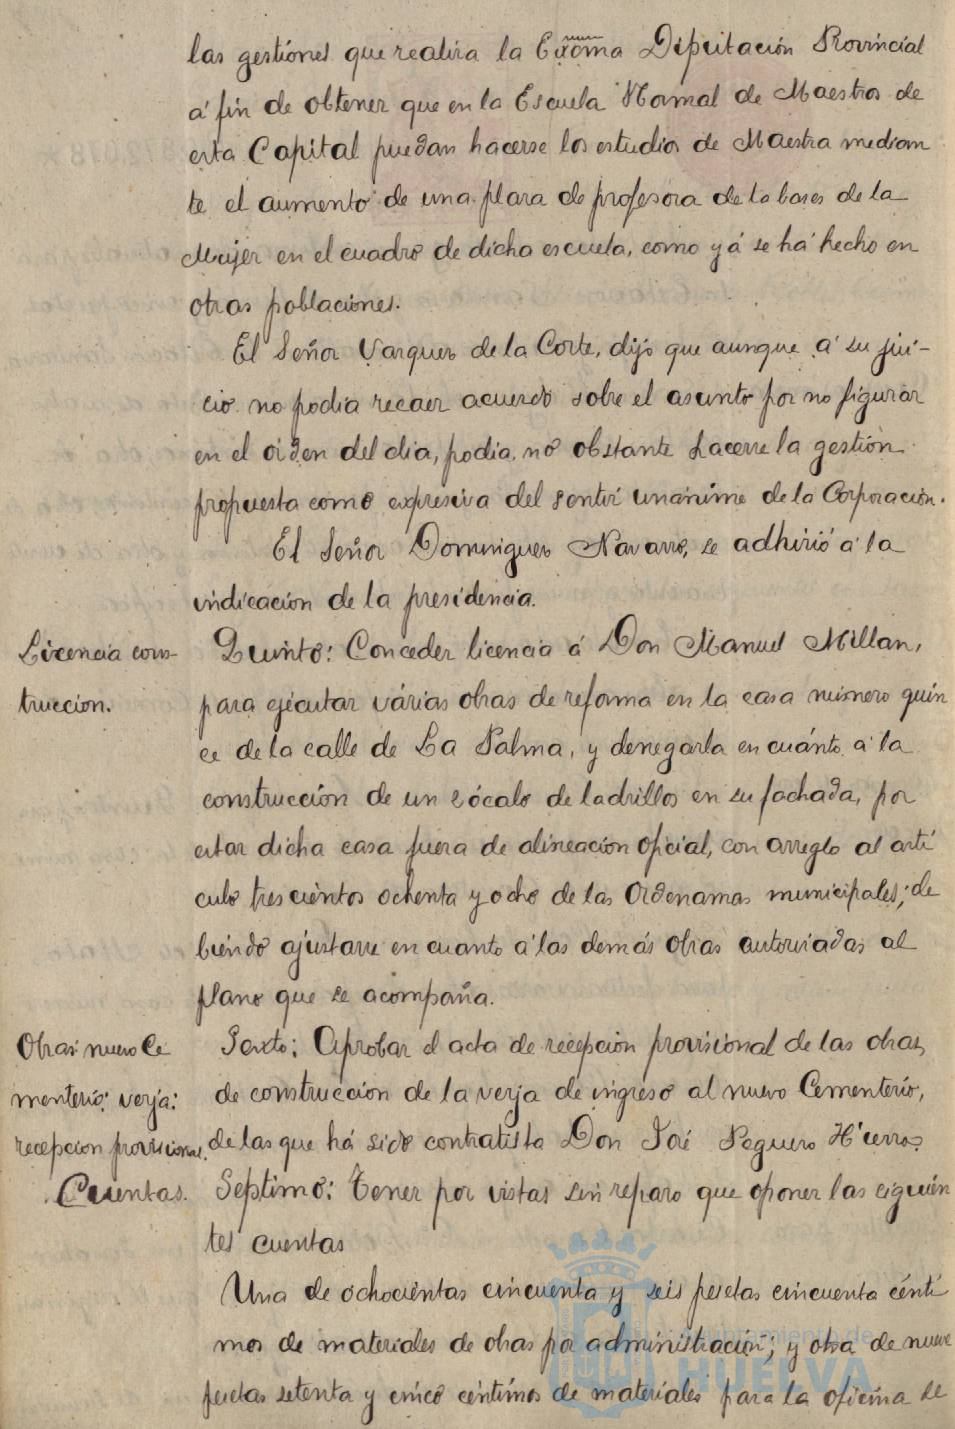 las gestiones que realiza la Excma Diputación Provincial
á fin de obtener que en la Escuela Normal de Maestros de
esta Capital puedan hacerse los estudios de Maestra median
te el aumento de una plaza de profesora de labores de la
Mujer en el cuadro de dicha escuela, como yá se há hecho en
otras poblaciones.
El Señor Vazquez de la Corte, dijo que aunque á su jui-
cio no podia recaer acuerdo sobre el asunto por no figurar
en el órden del dia, podia no obstante hacerse la gestión
propuesta como expresiva del sentir unánime de la Corporación.
El Señor Dominguez Navarro, se adhirió á la
indicación de la presidencia.
Licencia cons-
truccion.
Quinto: Conceder licencia á Don Manuel Millan,
para ejecutar várias obras de reforma en la casa número quin
ce de la calle de La Palma, y denegarla en cuánto á la
construcción de un zócalo de ladrillos en su fachada, por
estar dicha casa fuera de alineación oficial, con arreglo al artí
culo trescientos ochenta y ocho de las Ordenanzas municipales; de
biendo ajustarse en cuanto á las demás obras autorizadas al
plano que se acompaña.
Obras nuevo Ce
menterio: verja:
recepcion provisional.
Sexto: Aprobar el acta de recepción provisional de las obras
de construcción de la verja de ingreso al nuevo Cementerio,
de las que há sido contratista Don José Peguero Hierro
Cuentas.
Septimo: Tener por vistas sin reparo que oponer las siguien
tes cuentas
Una de ochocientas cincuenta y seis pesetas cincuenta cénti
mos de materiales de obras por administración; y otra de nueve
pesetas setenta y cinco céntimos de materiales para la oficina de
Ayuntamiento de
HUELVA